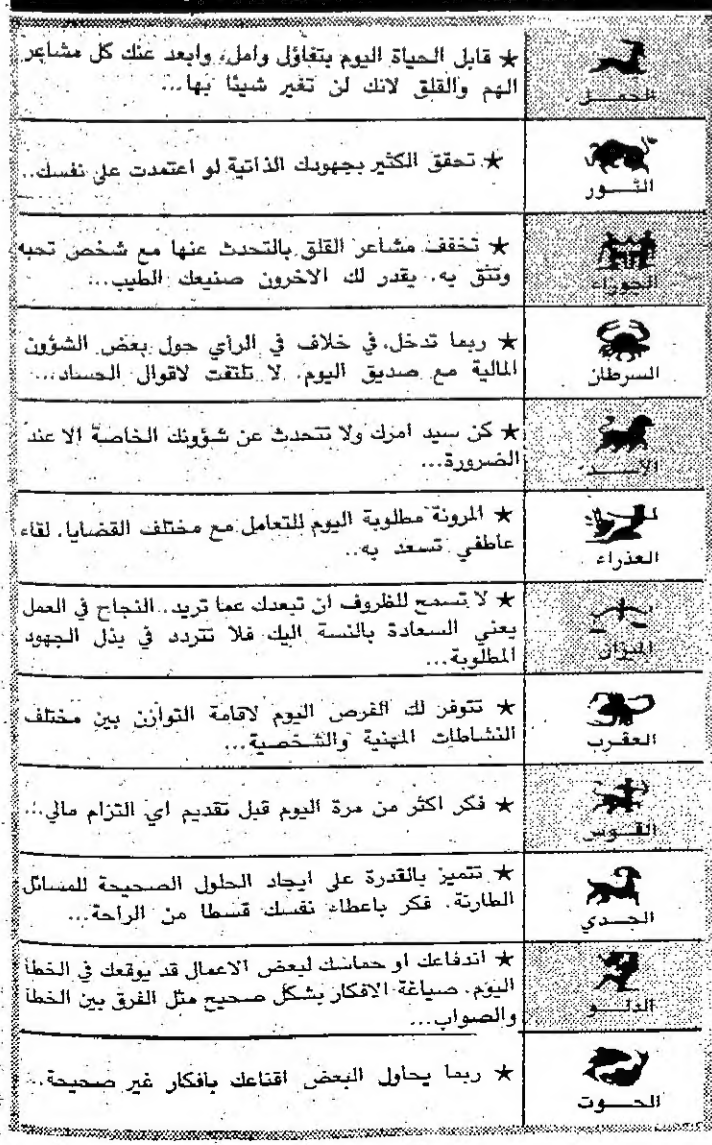 الحمل
★ قابل الحياة اليوم بتفاؤل وامل، وابعد عنك كل مشاعر
الهم والقلق لانك لن تغير شيئا بها...
الثور
★ تحقق الكثير بجهودك الذاتية لو اعتمدت على نفسك..
الجوزاء
★ تخفف مشاعر القلق بالتحدث عنها مع شخص تحبه
وتثق به. يقدر لك الاخرون صنيعك الطيب...
السرطان
★ ربما تدخل في خلاف في الرأي حول بعض الشؤون
المالية مع صديق اليوم. لا تلتفت لاقوال الحساد...
الاسد
★ كن سيد امرك ولا تتحدث عن شؤونك الخاصة الا عند
الضرورة...
العذراء
★ المرونة مطلوبة اليوم للتعامل مع مختلف القضايا. لقاء
عاطفي تسعد به..
الميزان
★ لا تسمح للظروف ان تبعدك عما تريد. النجاح في العمل
يعني السعادة بالنسة اليك فلا تتردد في بذل الجهود
المطلوبة...
العقرب
★ تتوفر لك الفرص اليوم لاقامة التوازن بين مختلف
النشاطات المهنية والشخصية...
القوس
★ فكر اكثر من مرة اليوم قبل تقديم اي التزام مالي..
الجدي
★ تتميز بالقدرة على ايجاد الحلول الصحيحة للمسائل
الطارئة. فكر باعطاء نفسك قسطا من الراحة...
الدلو
★ اندفاعك او حماسك لبعض الاعمال قد يوقعك في الخطأ
اليوم. صياغة الافكار بشكل صحيح مثل الفرق بين الخطأ
والصواب...
الحوت
★ ربما يحاول البعض اقناعك بأفكار غير صحيحة..